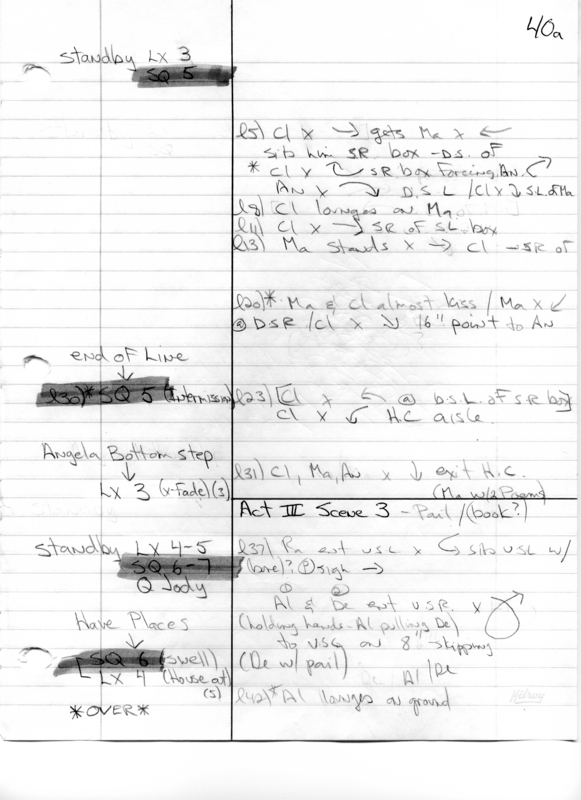 40a
standby LX 3
SQ 5
l5) Cl X → gets Ma X ←
sits him SR box - D.S. of
* Cl X SR box Forcing An.
An X D.S L / Cl X ↓ S.L. of Ma
l9) Cl lounges on Ma
l11) Cl X → SR of S.L. box
l13) Ma Stands X → Cl - SR of
l20)* Ma & Cl almost kiss / Ma X ↙
@ DSR / Cl X ↘ 16" point to An
end of Line
↓
l30)* SQ 5 (Intermission)
l23) [Cl X @ D.S.L. of SR box]
Cl X ↙ H.C aisle.
Angela Bottom step
↓
LX 3 (x-Fade) (3)
l31) Cl, Ma, An X ↓ exit H.C.
(Ma w/2 Poems)
Act III Scene 3 - Pail / (book?)
standby LX 4-5
SQ 6-7
Q Jody
l37) Ra ent USC X sits USL w/
(bone)? (P) sigh →
① ②
Al & De ent USR X
(holding hands - Al pulling De)
to USC on 8" skipping
(De w/ pail)
De Al / De
Have Places
↓
SQ 6 (swell)
LX 4 (House at)
(5)
l42)* Al lounges on ground
*OVER*
Hilroy